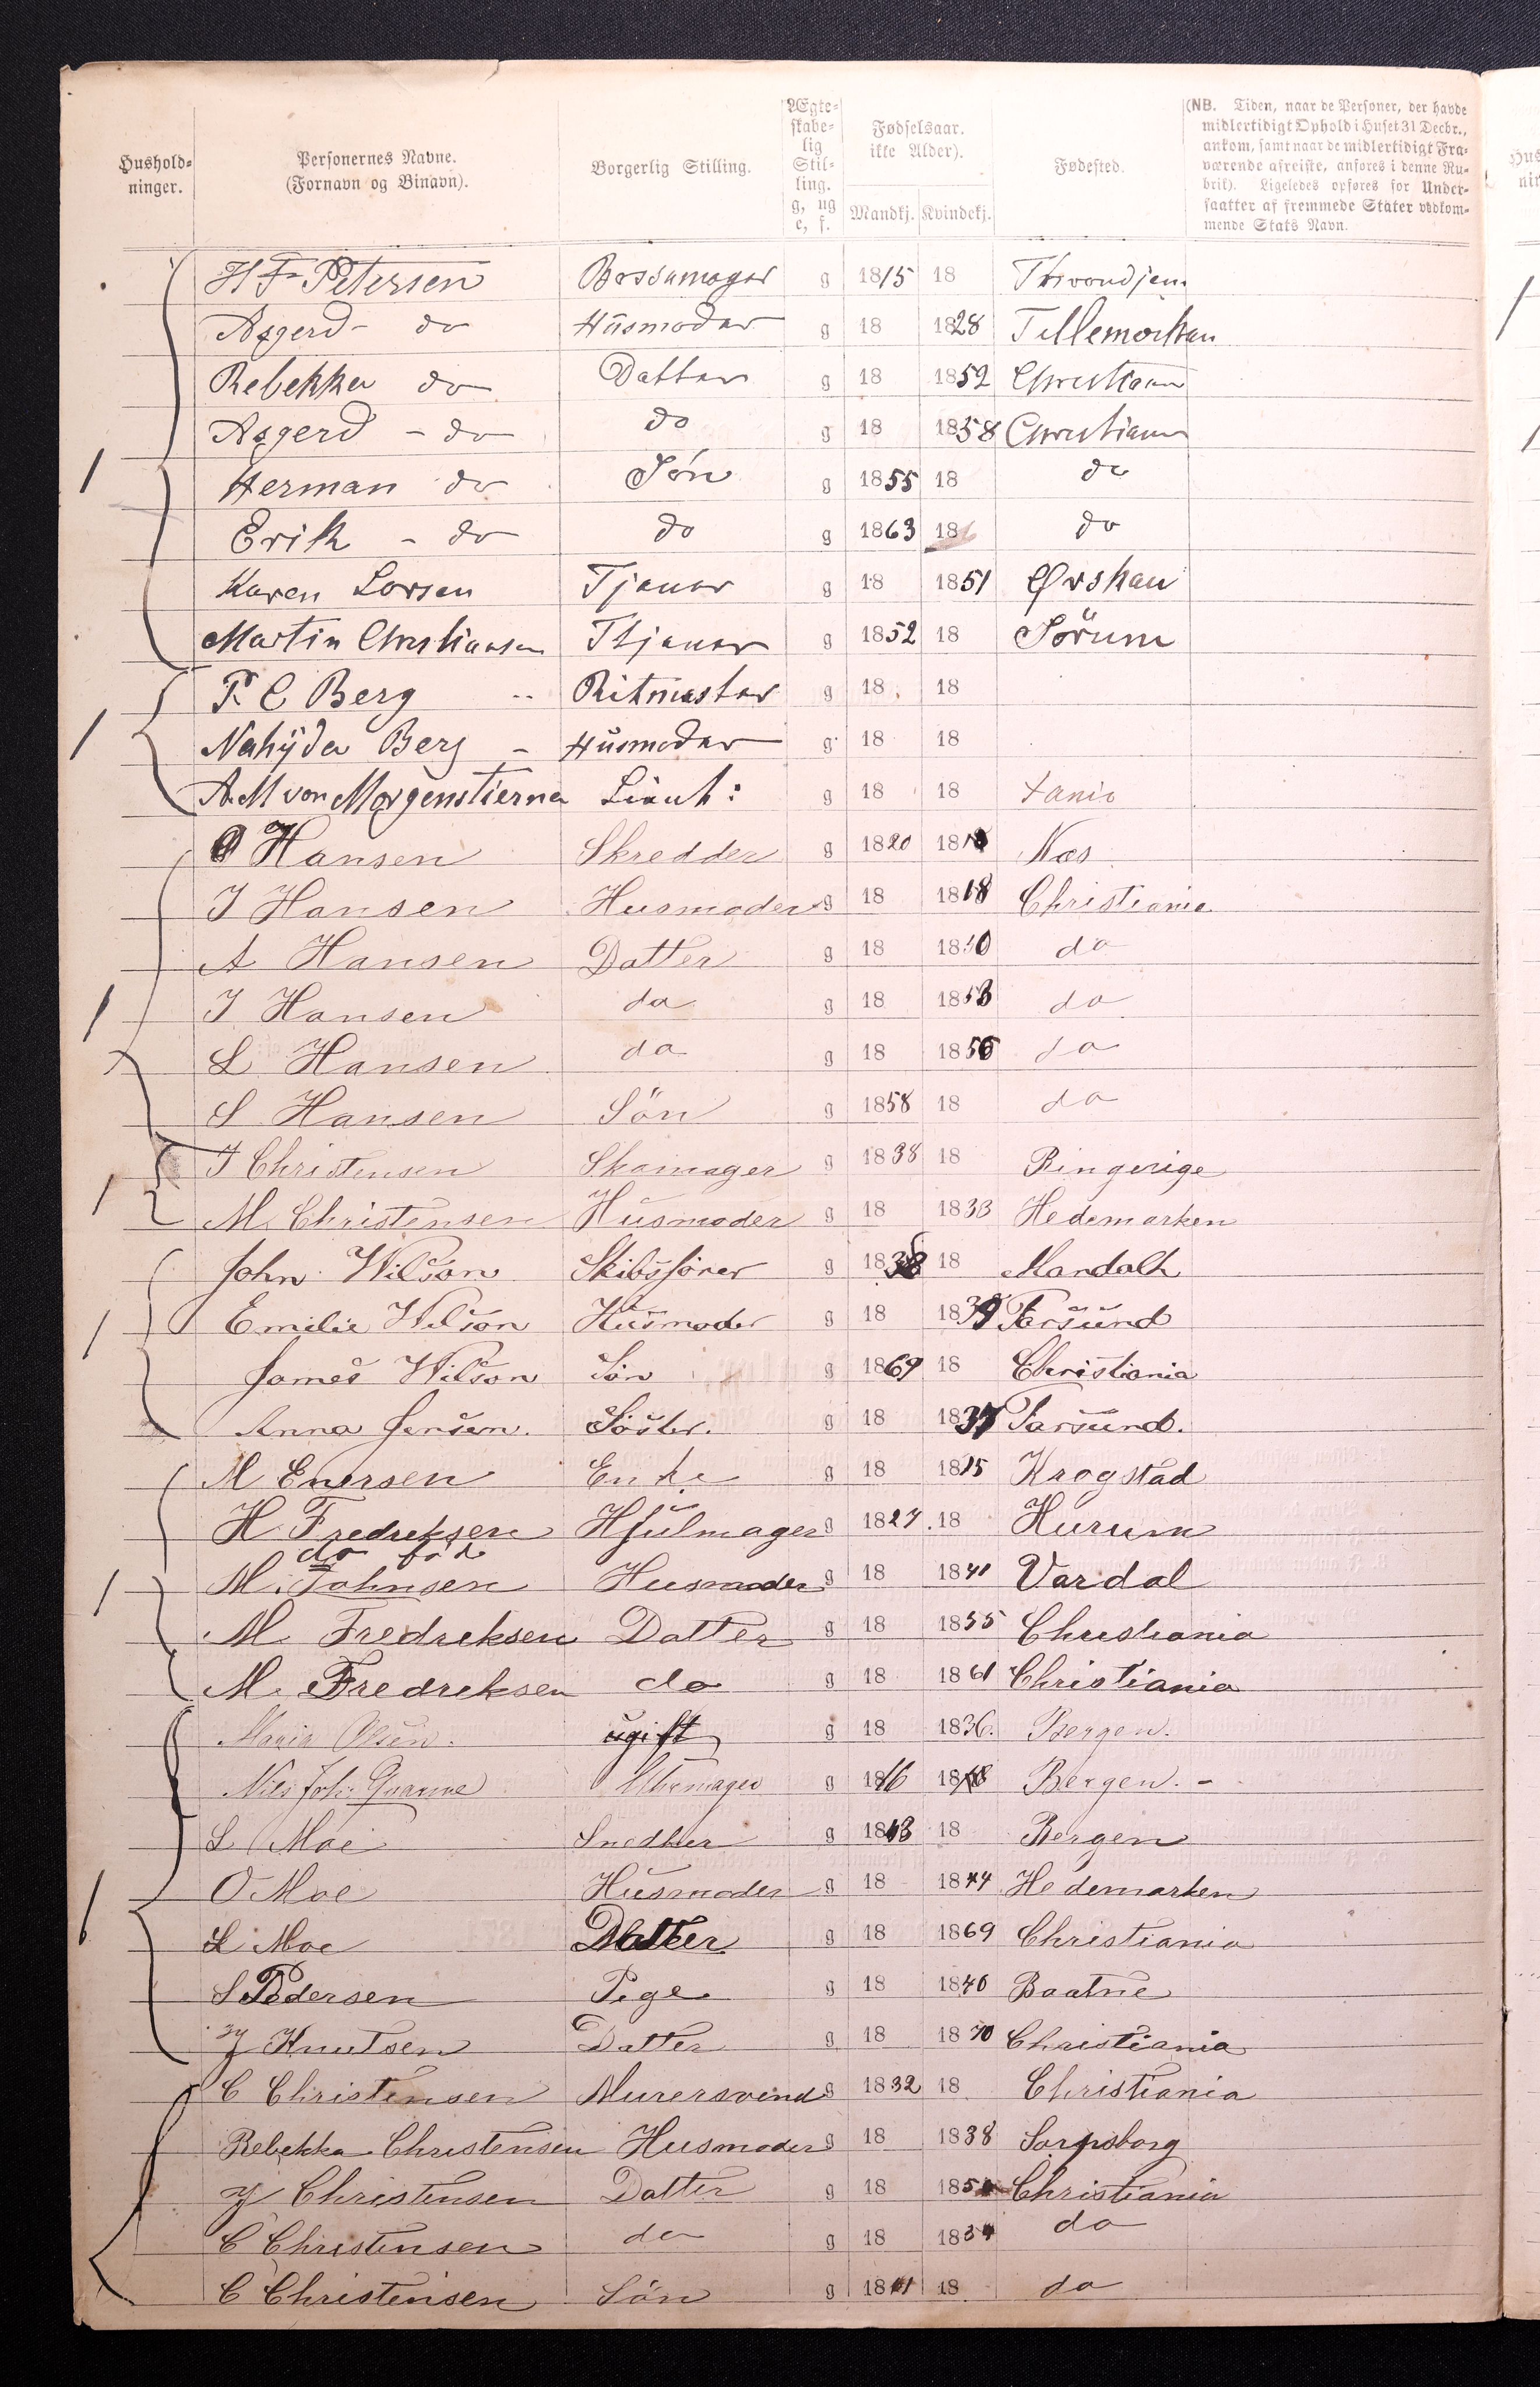 Hushold-
ninger.
Personernes Navne.
(Fornavn og Binavn).
Borgerlig Stilling.
Ægte-
skabe-
lig
Stil-
ling.
g, ug
e, f.
Fødselsaar.
ikke Alder).
Mandkj. Kvindekj.
Fødested.
(NB. Tiden, naar de Personer, der havde
midlertidigt Ophold i Huset 31 Decbr.,
ankom, samt naar de midlertidigt Fra-
værende afreiste, anføres i denne Ru-
brik). Ligeledes opføres for Under-
saatter af fremmede Stater vedkom-
mende Stats Navn.
H F Petersen Bossamager g 1815 18
Asgerd - do Husmoder g 18 1828 Tellemorken
Rebekka do Datter g 18 1852
Asgerd - do do g 18 1858
1 Herman do Søn g 1855 18 do
Erik - do do g 1863 18 do
Karen Lorsen Tjener g 18 1851 Ørskau
Martin Christiansen Tjener g 1852 18 Sörum
F. C Berg Ritmester g 18 18
1 Berg - Husmoder g 18 18
A. M von Morgenstierna Lieut: g 18 18
Hansen Skredder g 1820 18 Næs
J Hansen Husmoder g 18 1818 Christiania
A Hansen Datter g 18 18 do
1 J Hansen do g 18 1853 do
L Hansen do g 18 1856 do
S Hansen Sön g 1858 18 do
J Christensen Skomager g 1838 18 Ringerige
1 M. Christensen Husmoder g 18 1833 Hedemarken
John Wilson Skibsfører g 1838 18
1 Emilie Wilson Husmoder g 18 1839 Farsund
James Wilson Søn g 1869 18 Christiania
Anna Jensen. Söster. g 18 1837 Farsund.
M Enersen Enke g 18 1815 Krogstad
H Fredreksen Hjulmager g 1827 18 Hurum
do
1 M. Johnsen Husmoder g 18 18 Vardal
M. Fredreksen Datter g 18 1855 Christiania
M. Fredreksen do g 18 1861 Christiania
Maria Olsen. ugift g 18 1836. Bergen.
Nils Joh. Uhrmager g 1816 18 Bergen. -
L Moe Snedker g 1843 18 Bergen
1 O Moe Husmoder g 18 1844 Hedemarken
L Moe Datter g 18 1869 Christiania
S Pedersen Pige g 18 1846
J Knutsen Datter g 18 1870 Christiania
C Christensen Murersvend g 1832 18 Christiania
Rebekka Christensen Husmoder g 18 1838 Sarpsborg
J Christensen Datter g 18 185 Christiania
C Christensen do g 18 18 do
C Christensen Sön g 18 18 do